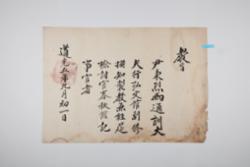 敎旨
尹東烈爲通訓大
夫行弘文館副修
撰知製敎兼經筵
檢討官春秋館記
事官者
道光五年九月初一日